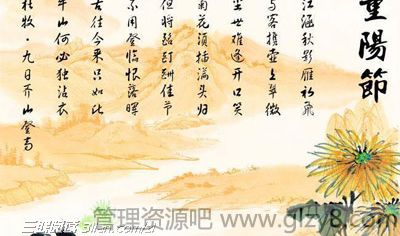 重陽節
江涵秋影雁初飛
与客携壺上翠微
尘世難逢开口笑
菊花須插滿头归
但将酩酊酬佳节
不用登临恨落暉
古往今来只如此
牛山何必独沾衣
杜牧·九日齐山登高
管理资源吧 www.glzy8.com